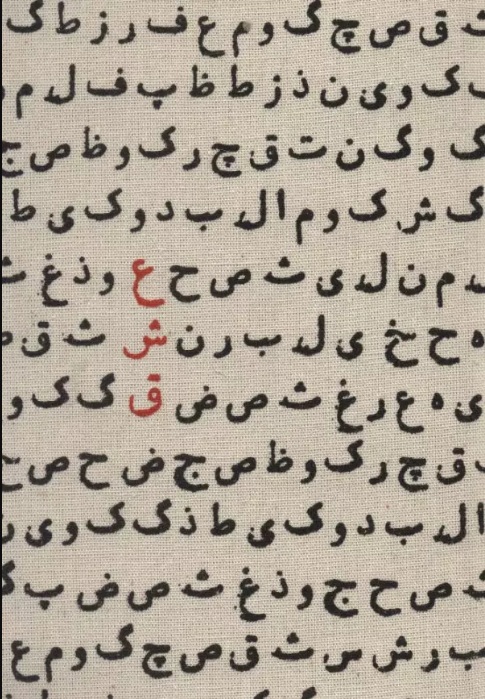 ق ص چ گ و م ع ف ر ز ط گ
ک و ی ن ذ ز ط ظ پ ف لد م
گ و گ ن ت ق چ ر ک و ظ ص ج
گ ش ک و م ا لد ب د و ک ی ط
م ن لد ی ث ص ح ع و ذ غ ث
ه ح خ ی لد ب ر ن ش ث ق
ی ه ع ر غ ث ص ض ق گ ک و
ق چ ر ک و ظ ص ج ض ح ص
ا لد ب د و ک ی ط ذ گ ک و ی ر
ص ح ج و ذ غ ث ص ض پ گ
ب ر ش س ث ق ص چ گ و م ع